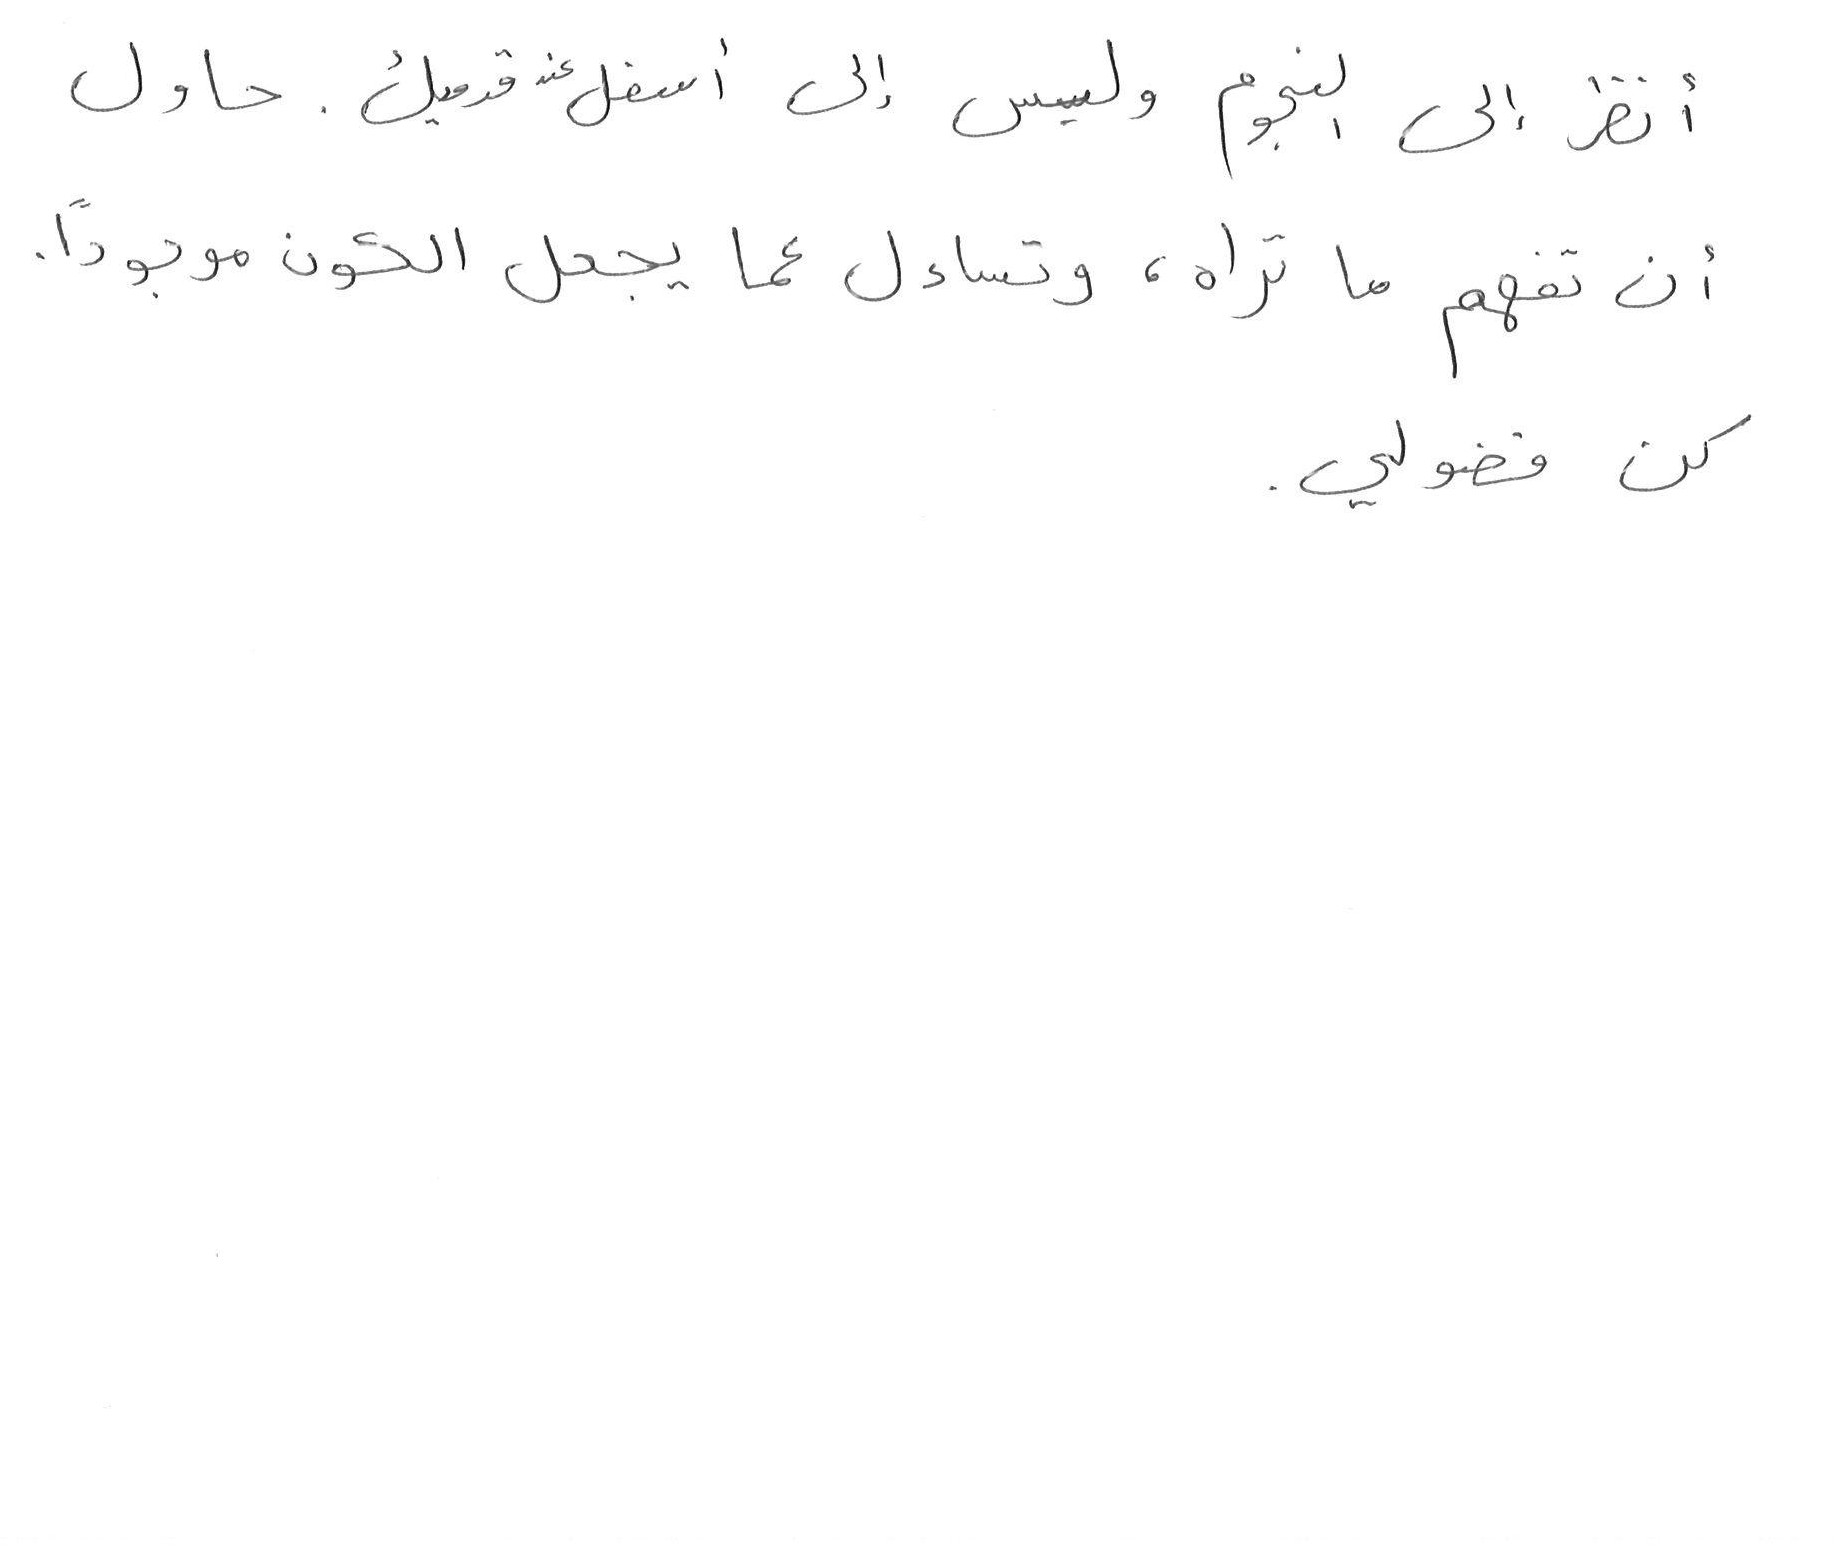 أنظر إلى النجوم وليس إلى أسفل عند قدميك. حاول
أن تفهم ما تراه، وتساءل عما يجعل الكون موجوداً.
كن فضولي.